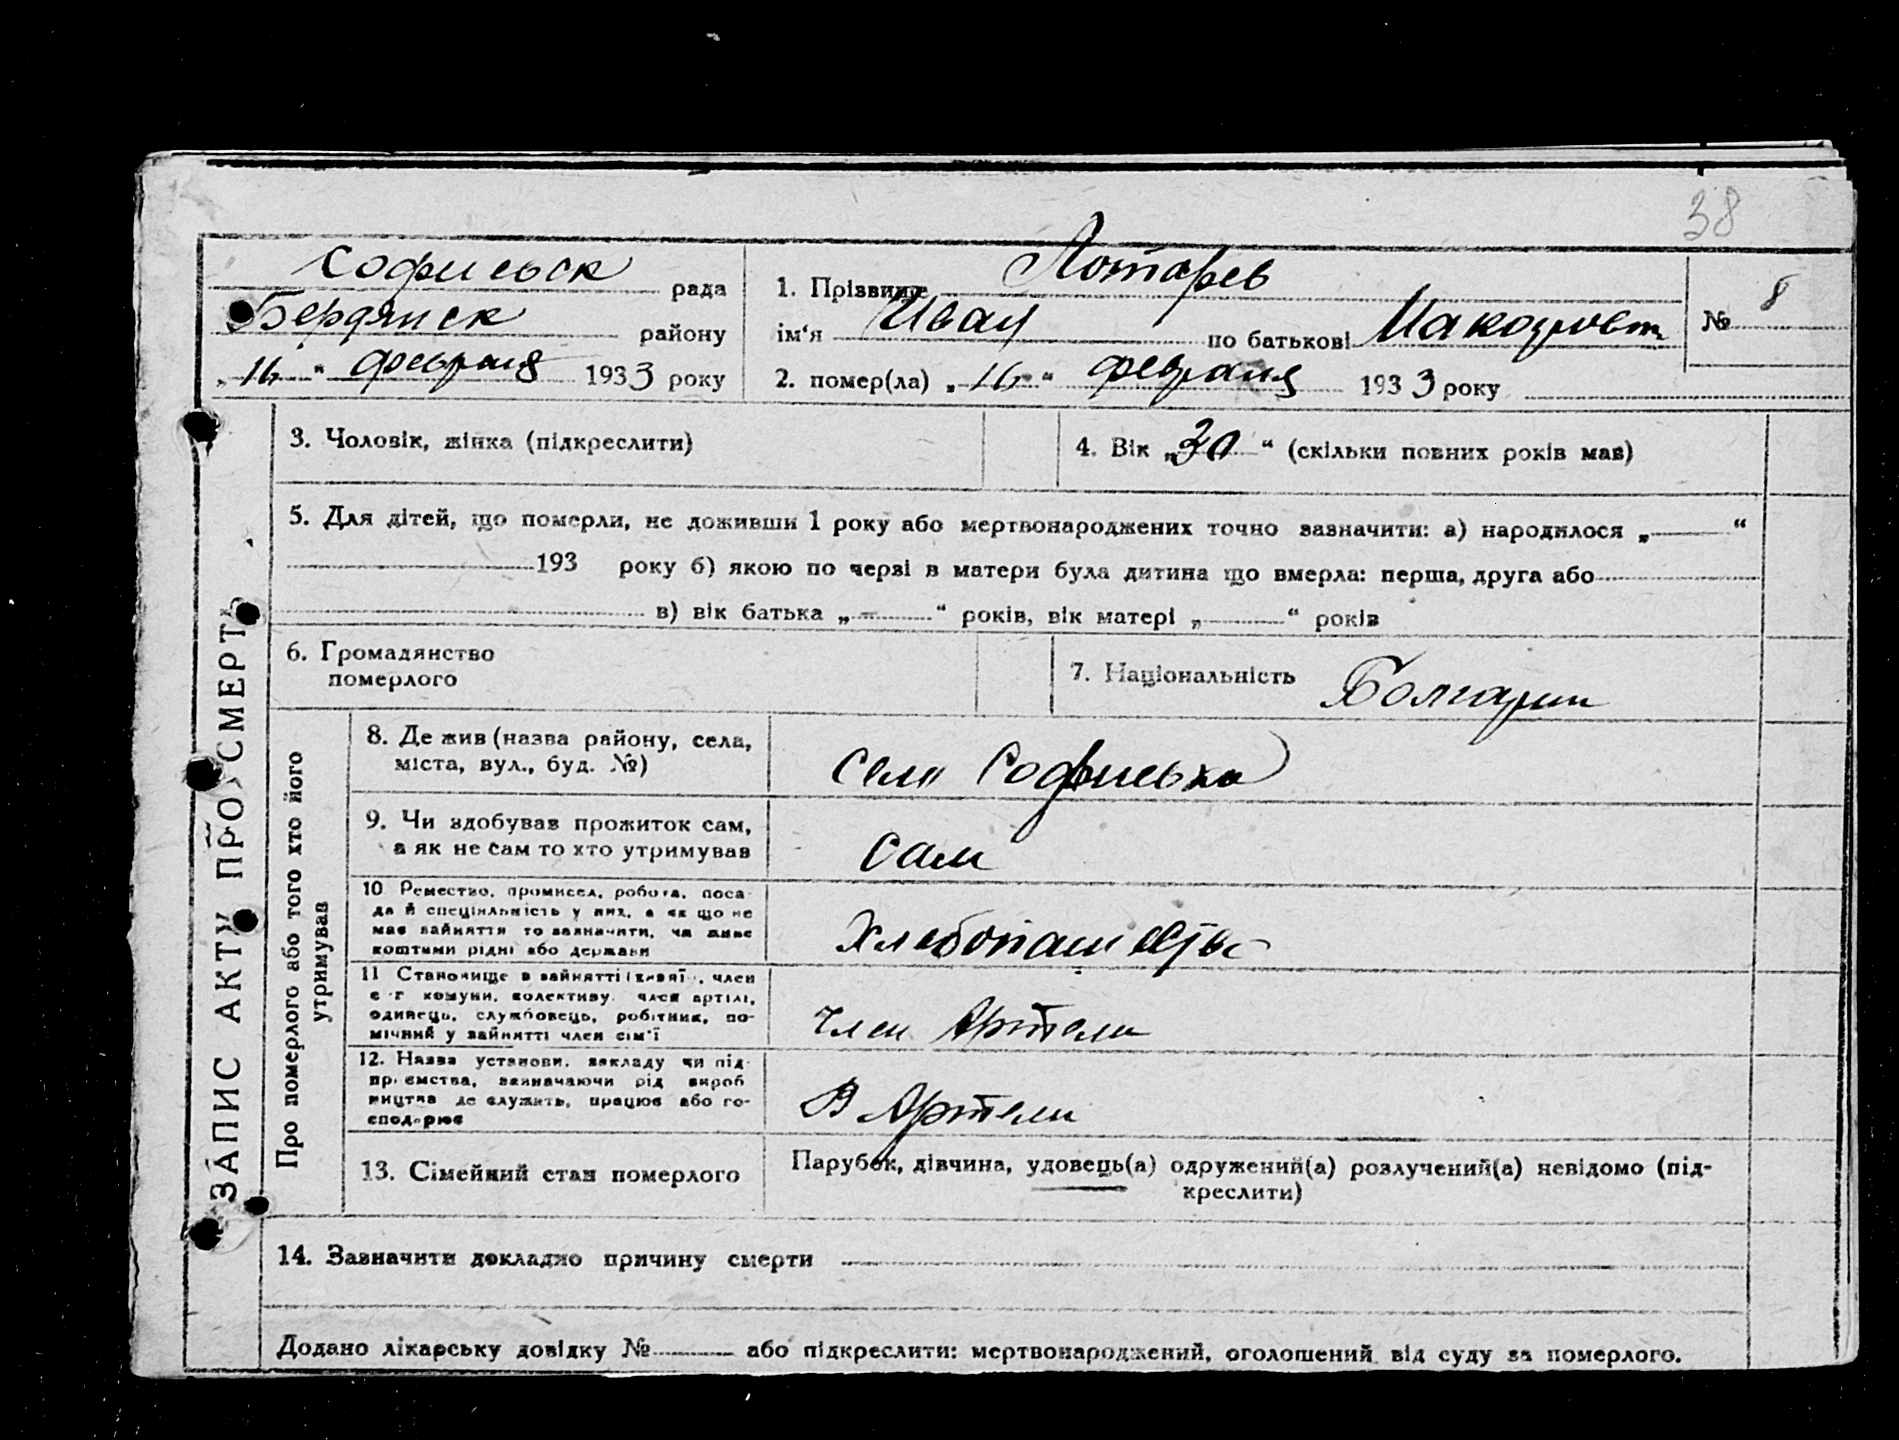 38
Софиевск рада
Бердянск району
„16“ февраля 1933 року
1. Прізвище Лотарев
ім‘я Иван по батькові
№ 8
2. помер(ла) „16“ февраля 1933 року
3. Чоловік, жінка (підкреслити)
4. Вік „30“ (скільки повних років мав)
5. Для дітей, що померли, не доживши 1 року або мертвонароджених точно зазначити: а) народилося „ “
193 року б) якою по черзі в матери була дитина що вмерла: перша, друга або
в) вік батька „ “ років, вік матері „ “ років
6. Громадянство
померлого
7. Національність Болгарин
8. Де жив (назва району, села,
міста, вул., буд. №)
село Софиевка
9. Чи здобував прожиток сам,
а як не сам то хто утримував
Сам
10 Ремество, промисел, робота, поса-
да й спеціяльність у них, а як що не
має зайняття то зазначити, чи живе
коштами рідні або держави
Хлебопашество
11 Становище в зайнятті (хазяї, член
с-г комуни, колективу, член артілі,
одинець, службовець, робітник, по-
мічний у зайнятті член сім‘ї
Член Артели
12. Назва установи, закладу чи під-
приємства, зазначаючи рід вироб
ництва де служить, працює або го-
сподарює
В Артели
13. Сімейний стан померлого
Парубок, дівчина, удовець(а) одружений(а) розлучений(а) невідомо (під-
креслити)
14. Зазначити докладно причину смерти
Додано лікарську довідку № або підкреслити: мертвонароджений, оголошений від суду за померлого.
ЗАПИС АКТУ ПРО СМЕРТЬ
Про померлого або того хто його
утримував